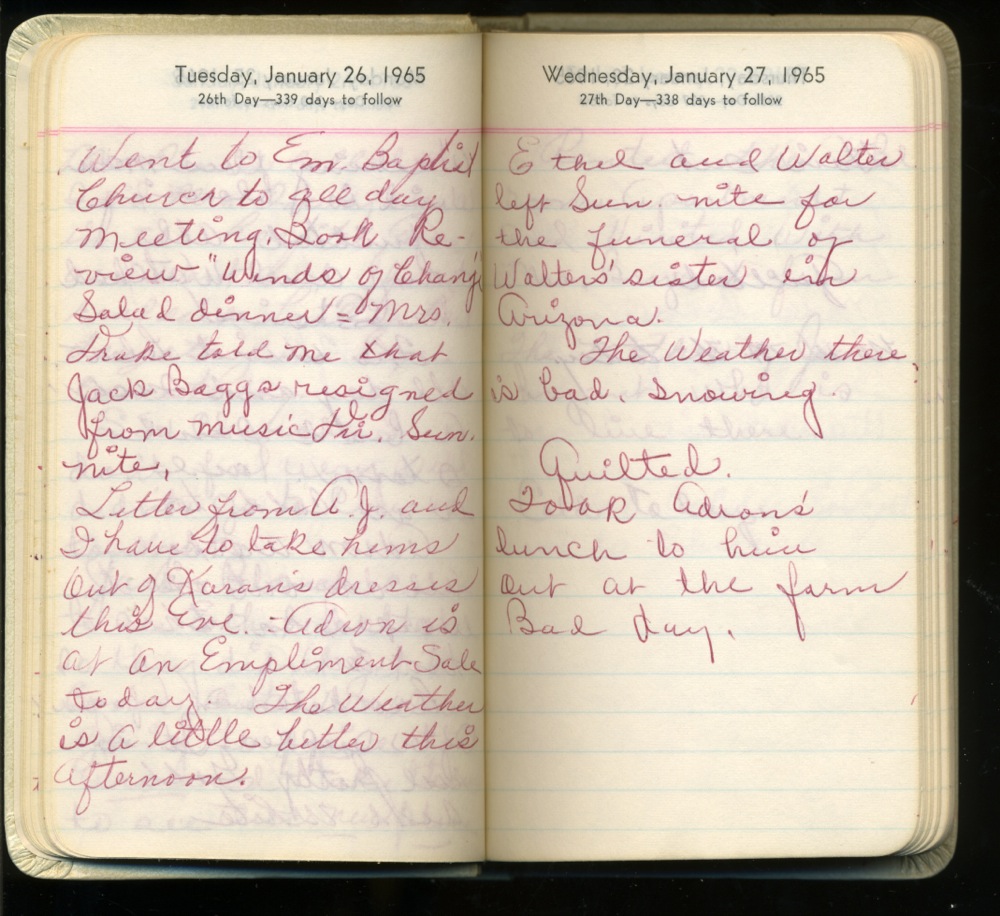 Tuesday, January 26, 1965
26th Day—339 days to follow
Went to Em. Baptist
Church to all day
meeting. Book Re-
view "Winds of Change
Salad dinner = Mrs.
Drake told me that
Jack Baggs resigned
from music Dir. Sun.
nite.
Letter from A.J. and
I have to take hems
out of Karan's dresses
this Eve. - Adron is
at an Empliment Sale
today. The Weather
is a little better this
afternoon.
Wednesday, January 27, 1965
27th Day—338 days to follow
Ethel and Walter
left Sun. nite for
the funeral of
Walters' sister in
Arizona.
The Weather there
is bad. Snowing.
Quilted.
Took Adron's
lunch to him
out at the farm
Bad day.